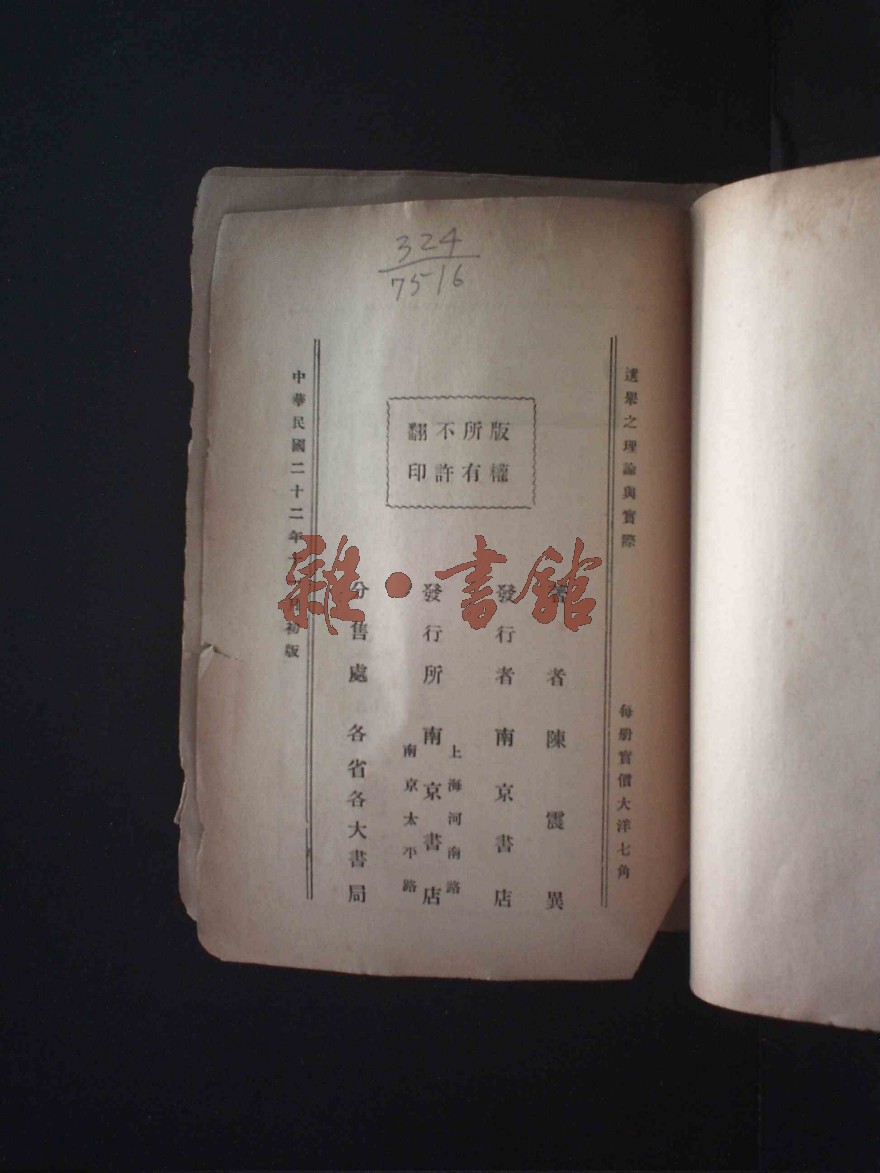 324
75-16
選舉之理論與實際
每册實價大洋七角
版權
所有
不許
翻印
著者 陳震異
發行者 南京書店
發行所 南京書店
上海河南路
南京太平路
分售處 各省各大書局
中華民國二十二年 月初版
雜·書館